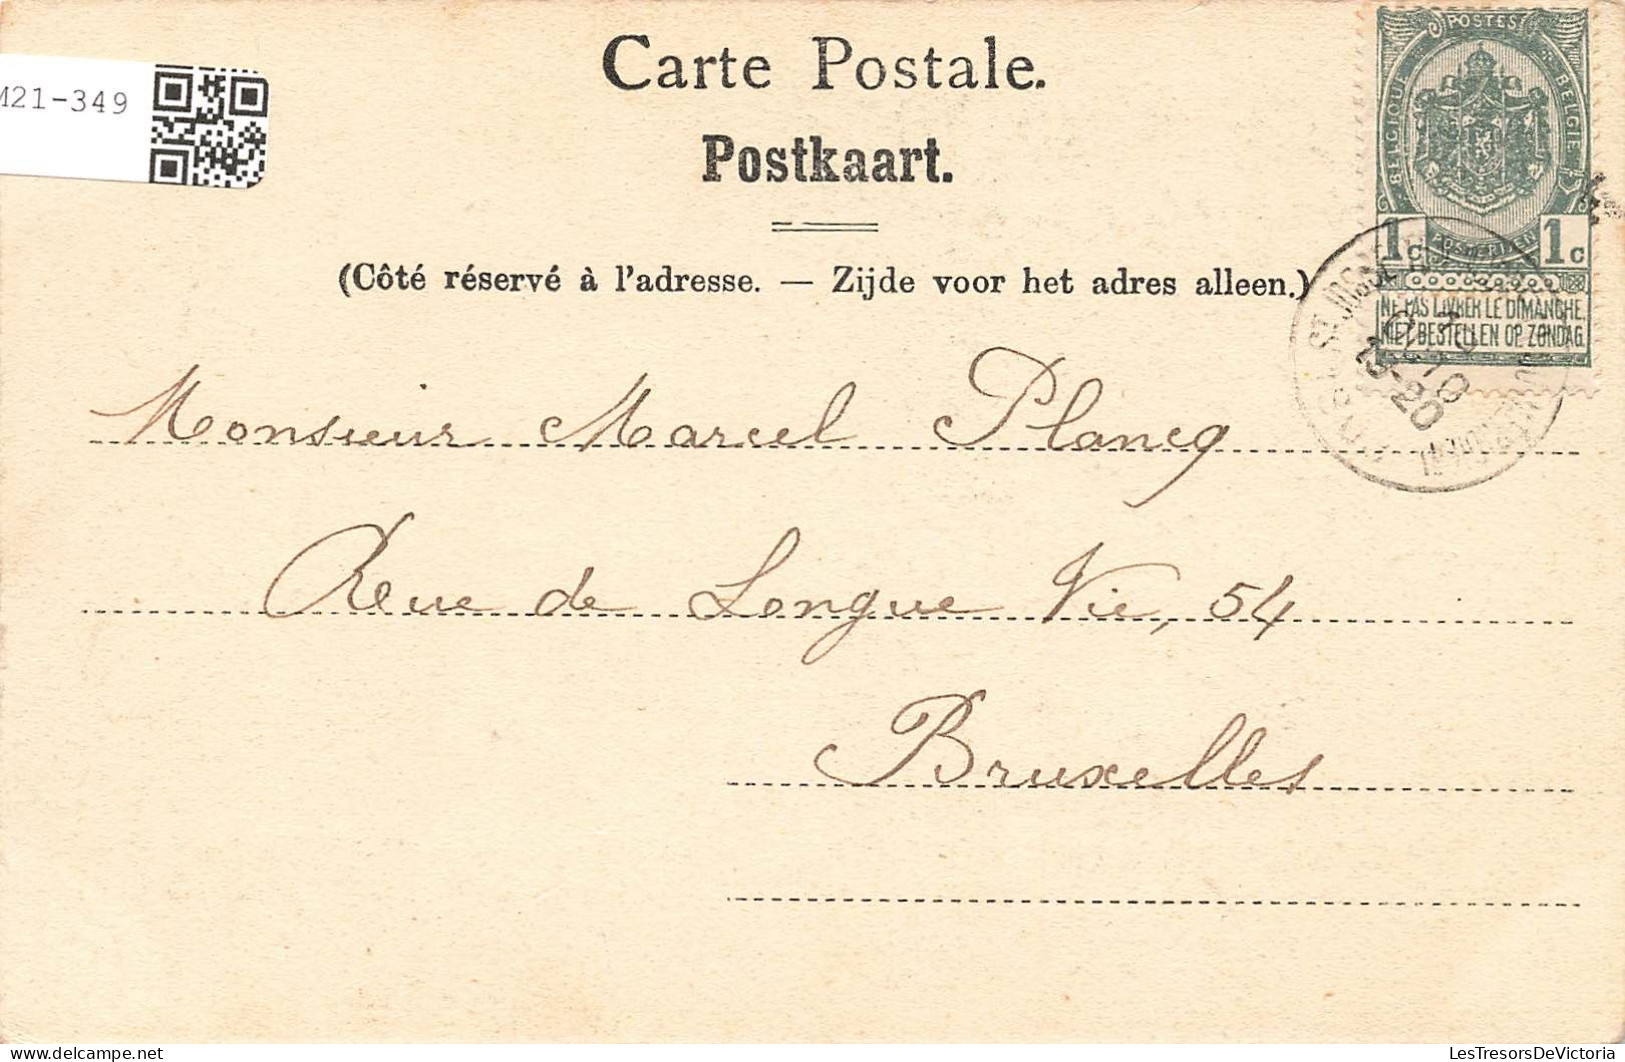 M21-349
Carte Postale.
Postkaart.
(Côté réservé à l'adresse. — Zijde voor het adres alleen.)
POSTES
BELGIQUE
BELGIE
POSTERIJEN
1c 1c
NE PAS LIVRER LE DIMANCHE.
NIET BESTELLEN OP ZONDAG.
Monsieur Marcel Plancq
Rue de Longue Vie, 54
Bruxelles
LesTresorsDeVictoria